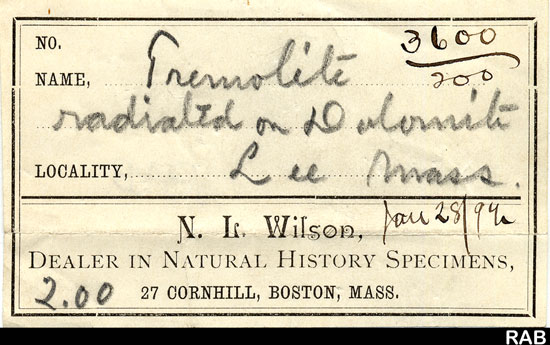 NO. 3600
200
NAME, Tremolite
radiated on Dolomite
LOCALITY, Lee Mass.
N. L. Wilson, Jan 28/92
DEALER IN NATURAL HISTORY SPECIMENS,
2.00 27 CORNHILL, BOSTON, MASS.
RAB